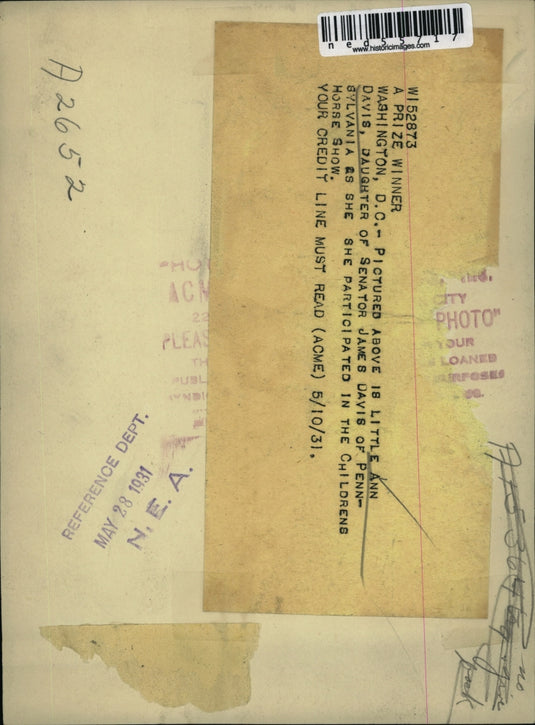 ned55717
www.historicimages.com
A2652
W152873
A PRIZE WINNER
WASHINGTON, D.C.- PICTURED ABOVE IS LITTLE ANN
DAVIS, DAUGHTER OF SENATOR JAMES DAVIS OF PENN-
SYLVANIA AS SHE SHE PARTICIPATED IN THE CHILDRENS
HORSE SHOW.
YOUR CREDIT LINE MUST READ (ACME) 5/10/31.
ACM
22
PLEAS
TH
PUBL
YNDI
CITY
PHOTO"
YOUR
LOANED
REFERENCE DEPT.
MAY 28 1931
N. E. A.
no